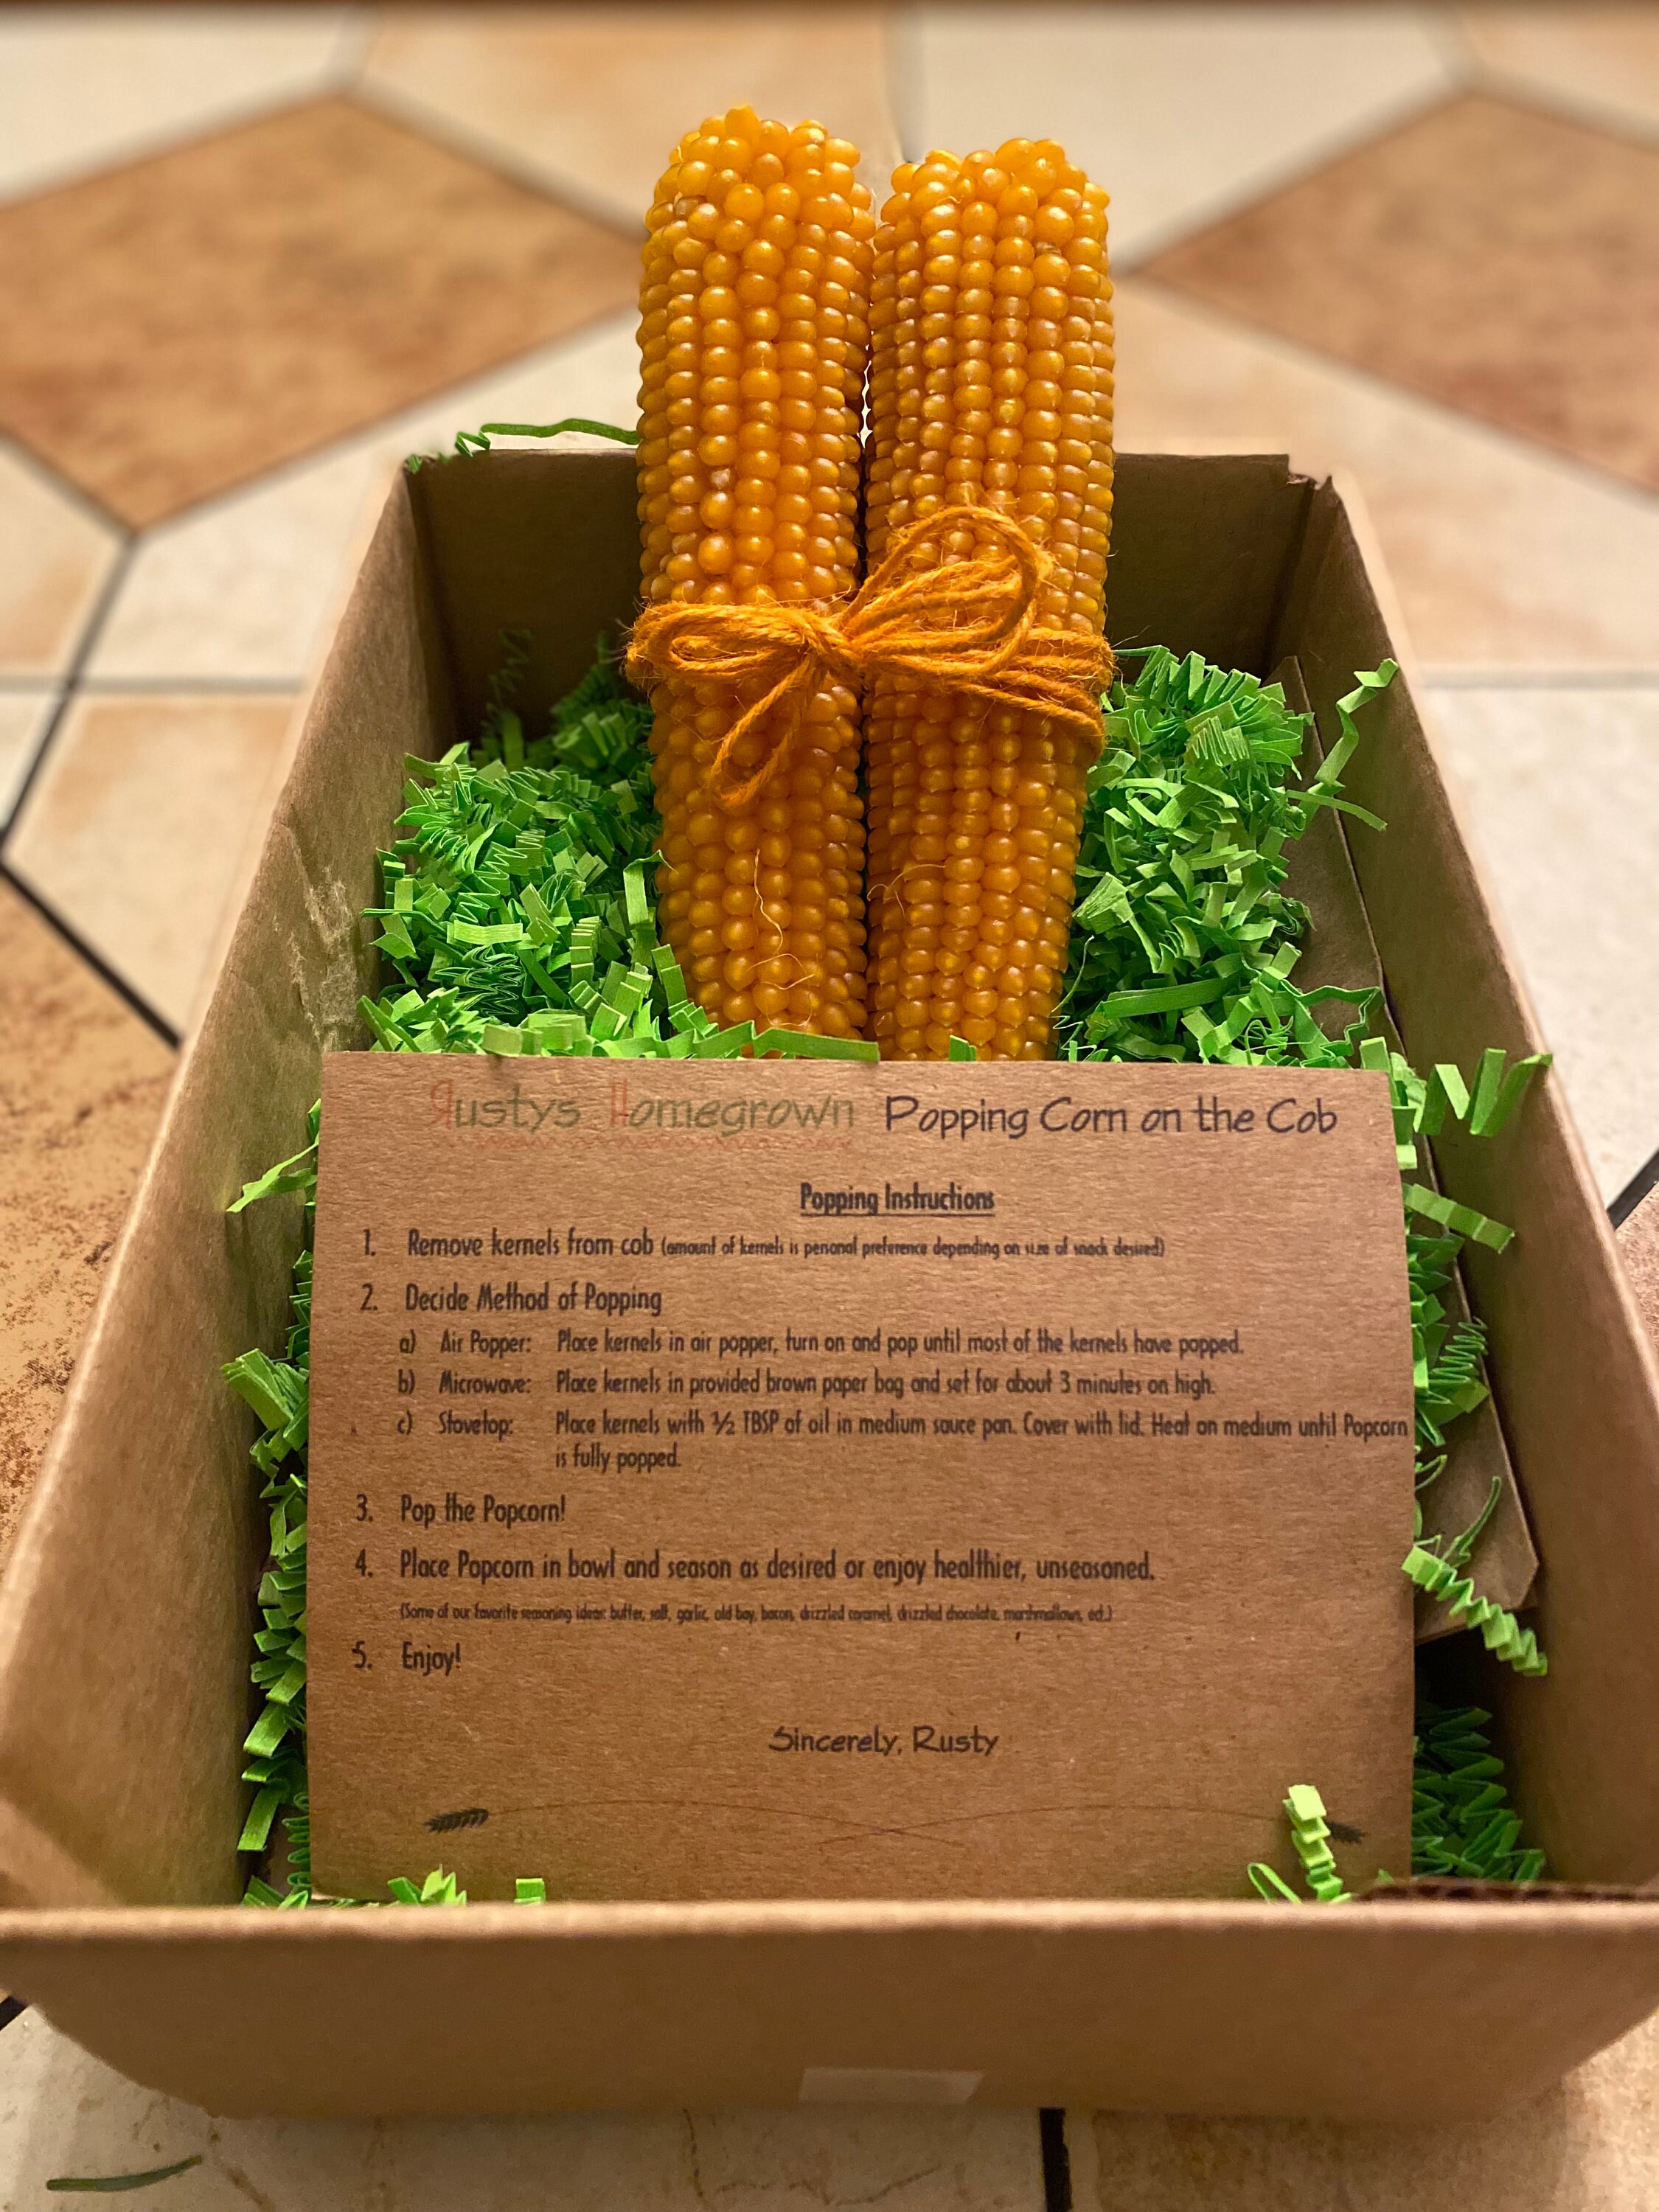 Rustys Homegrown Popping Corn on the Cob
Popping Instructions
1. Remove kernels from cob (amount of kernels is personal preference depending on size of snack desired)
2. Decide Method of Popping
a) Air Popper: Place kernels in air popper, turn on and pop until most of the kernels have popped.
b) Microwave: Place kernels in provided brown paper bag and set for about 3 minutes on high.
c) Stovetop: Place kernels with ½ TBSP of oil in medium sauce pan. Cover with lid. Heat on medium until Popcorn
is fully popped.
3. Pop the Popcorn!
4. Place Popcorn in bowl and season as desired or enjoy healthier, unseasoned.
(Some of our favorite seasoning ideas: butter, salt, garlic, old bay, bacon, drizzled caramel, drizzled chocolate, marshmallows, ect.)
5. Enjoy!
Sincerely, Rusty